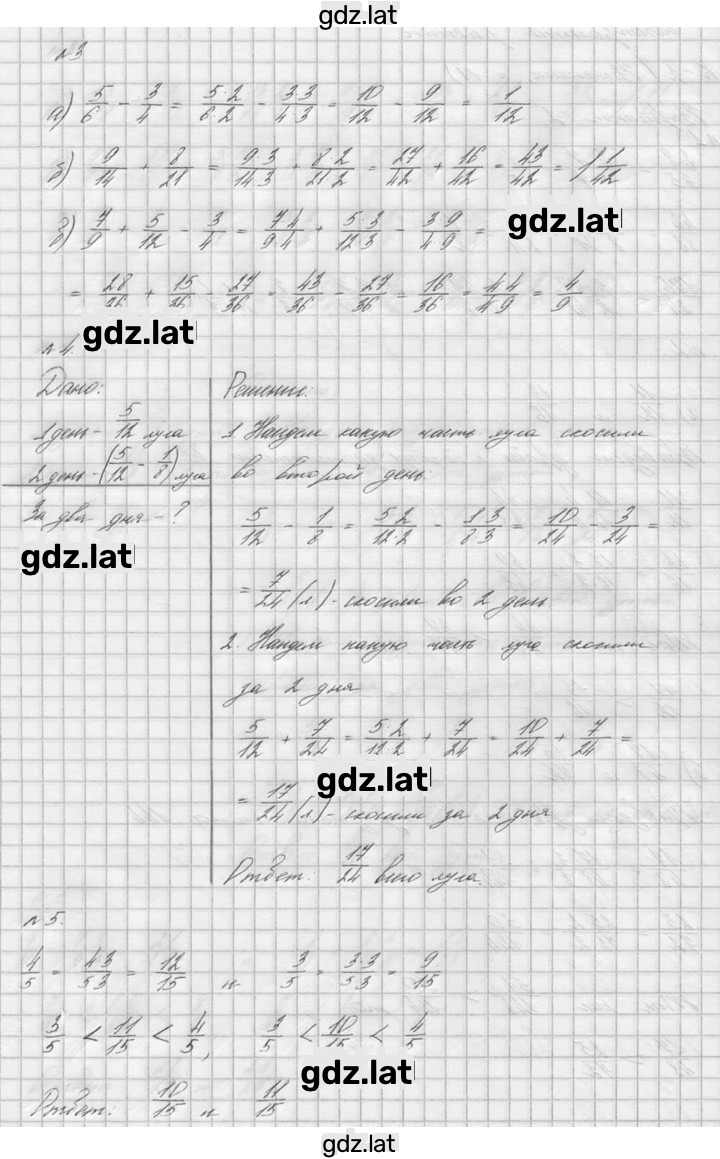 gdz.lat
№3
а) 5/6 - 3/4 = 5·2/6·2 - 3·3/4·3 = 10/12 - 9/12 = 1/12
б) 9/14 + 8/21 = 9·3/14·3 + 8·2/21·2 = 27/42 + 16/42 = 43/42 = 1 1/42
в) 7/9 + 5/12 - 3/4 = 7·4/9·4 + 5·3/12·3 - 3·9/4·9 =
gdz.lat
= 28/36 + 15/36 - 27/36 = 43/36 - 27/36 = 16/36 = 4·4/4·9 = 4/9
gdz.lat
№4.
Дано:
1 день - 5/12 луга
2 день - (5/12 - 1/8) луга
За два дня - ?
gdz.lat
Решение:
1. Найдем какую часть луга скосили
во второй день.
5/12 - 1/8 = 5·2/12·2 - 1·3/8·3 = 10/24 - 3/24 =
= 7/24 (л) - скосили во 2 день.
2. Найдем какую часть луга скосили
за 2 дня
5/12 + 7/24 = 5·2/12·2 + 7/24 = 10/24 + 7/24 =
gdz.lat
= 17/24 (л) - скосили за 2 дня
Ответ: 17/24 всего луга.
№5.
4/5 = 4·3/5·3 = 12/15 и 3/5 = 3·3/5·3 = 9/15
3/5 < 11/15 < 4/5, 3/5 < 10/15 < 4/5
gdz.lat
Ответ: 10/15 и 11/15
gdz.lat